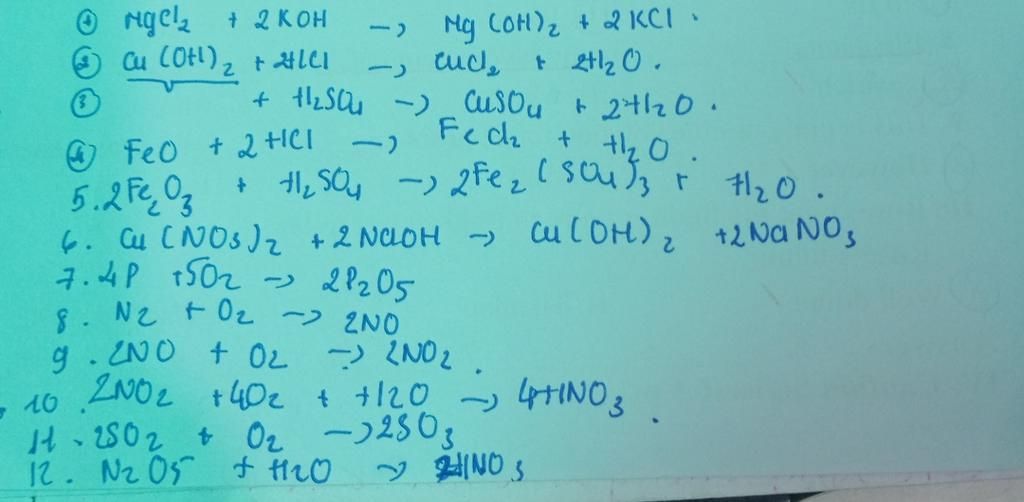 ① MgCl₂ + 2KOH → Mg(OH)₂ + 2KCl.
② Cu(OH)₂ + 2HCl → CuCl₂ + 2H₂O.
③ + H₂SO₄ → CuSO₄ + 2H₂O.
④ FeO + 2HCl → FeCl₂ + H₂O.
5. 2Fe₂O₃ + H₂SO₄ → 2Fe₂(SO₄)₃ + H₂O.
6. Cu(NO₃)₂ + 2NaOH → Cu(OH)₂ + 2NaNO₃
7. 4P + 5O₂ → 2P₂O₅
8. N₂ + O₂ → 2NO
9. 2NO + O₂ → 2NO₂.
10. 2NO₂ + 4O₂ + H₂O → 4HNO₃.
11. 2SO₂ + O₂ → 2SO₃
12. N₂O₅ + H₂O → 2HNO₃